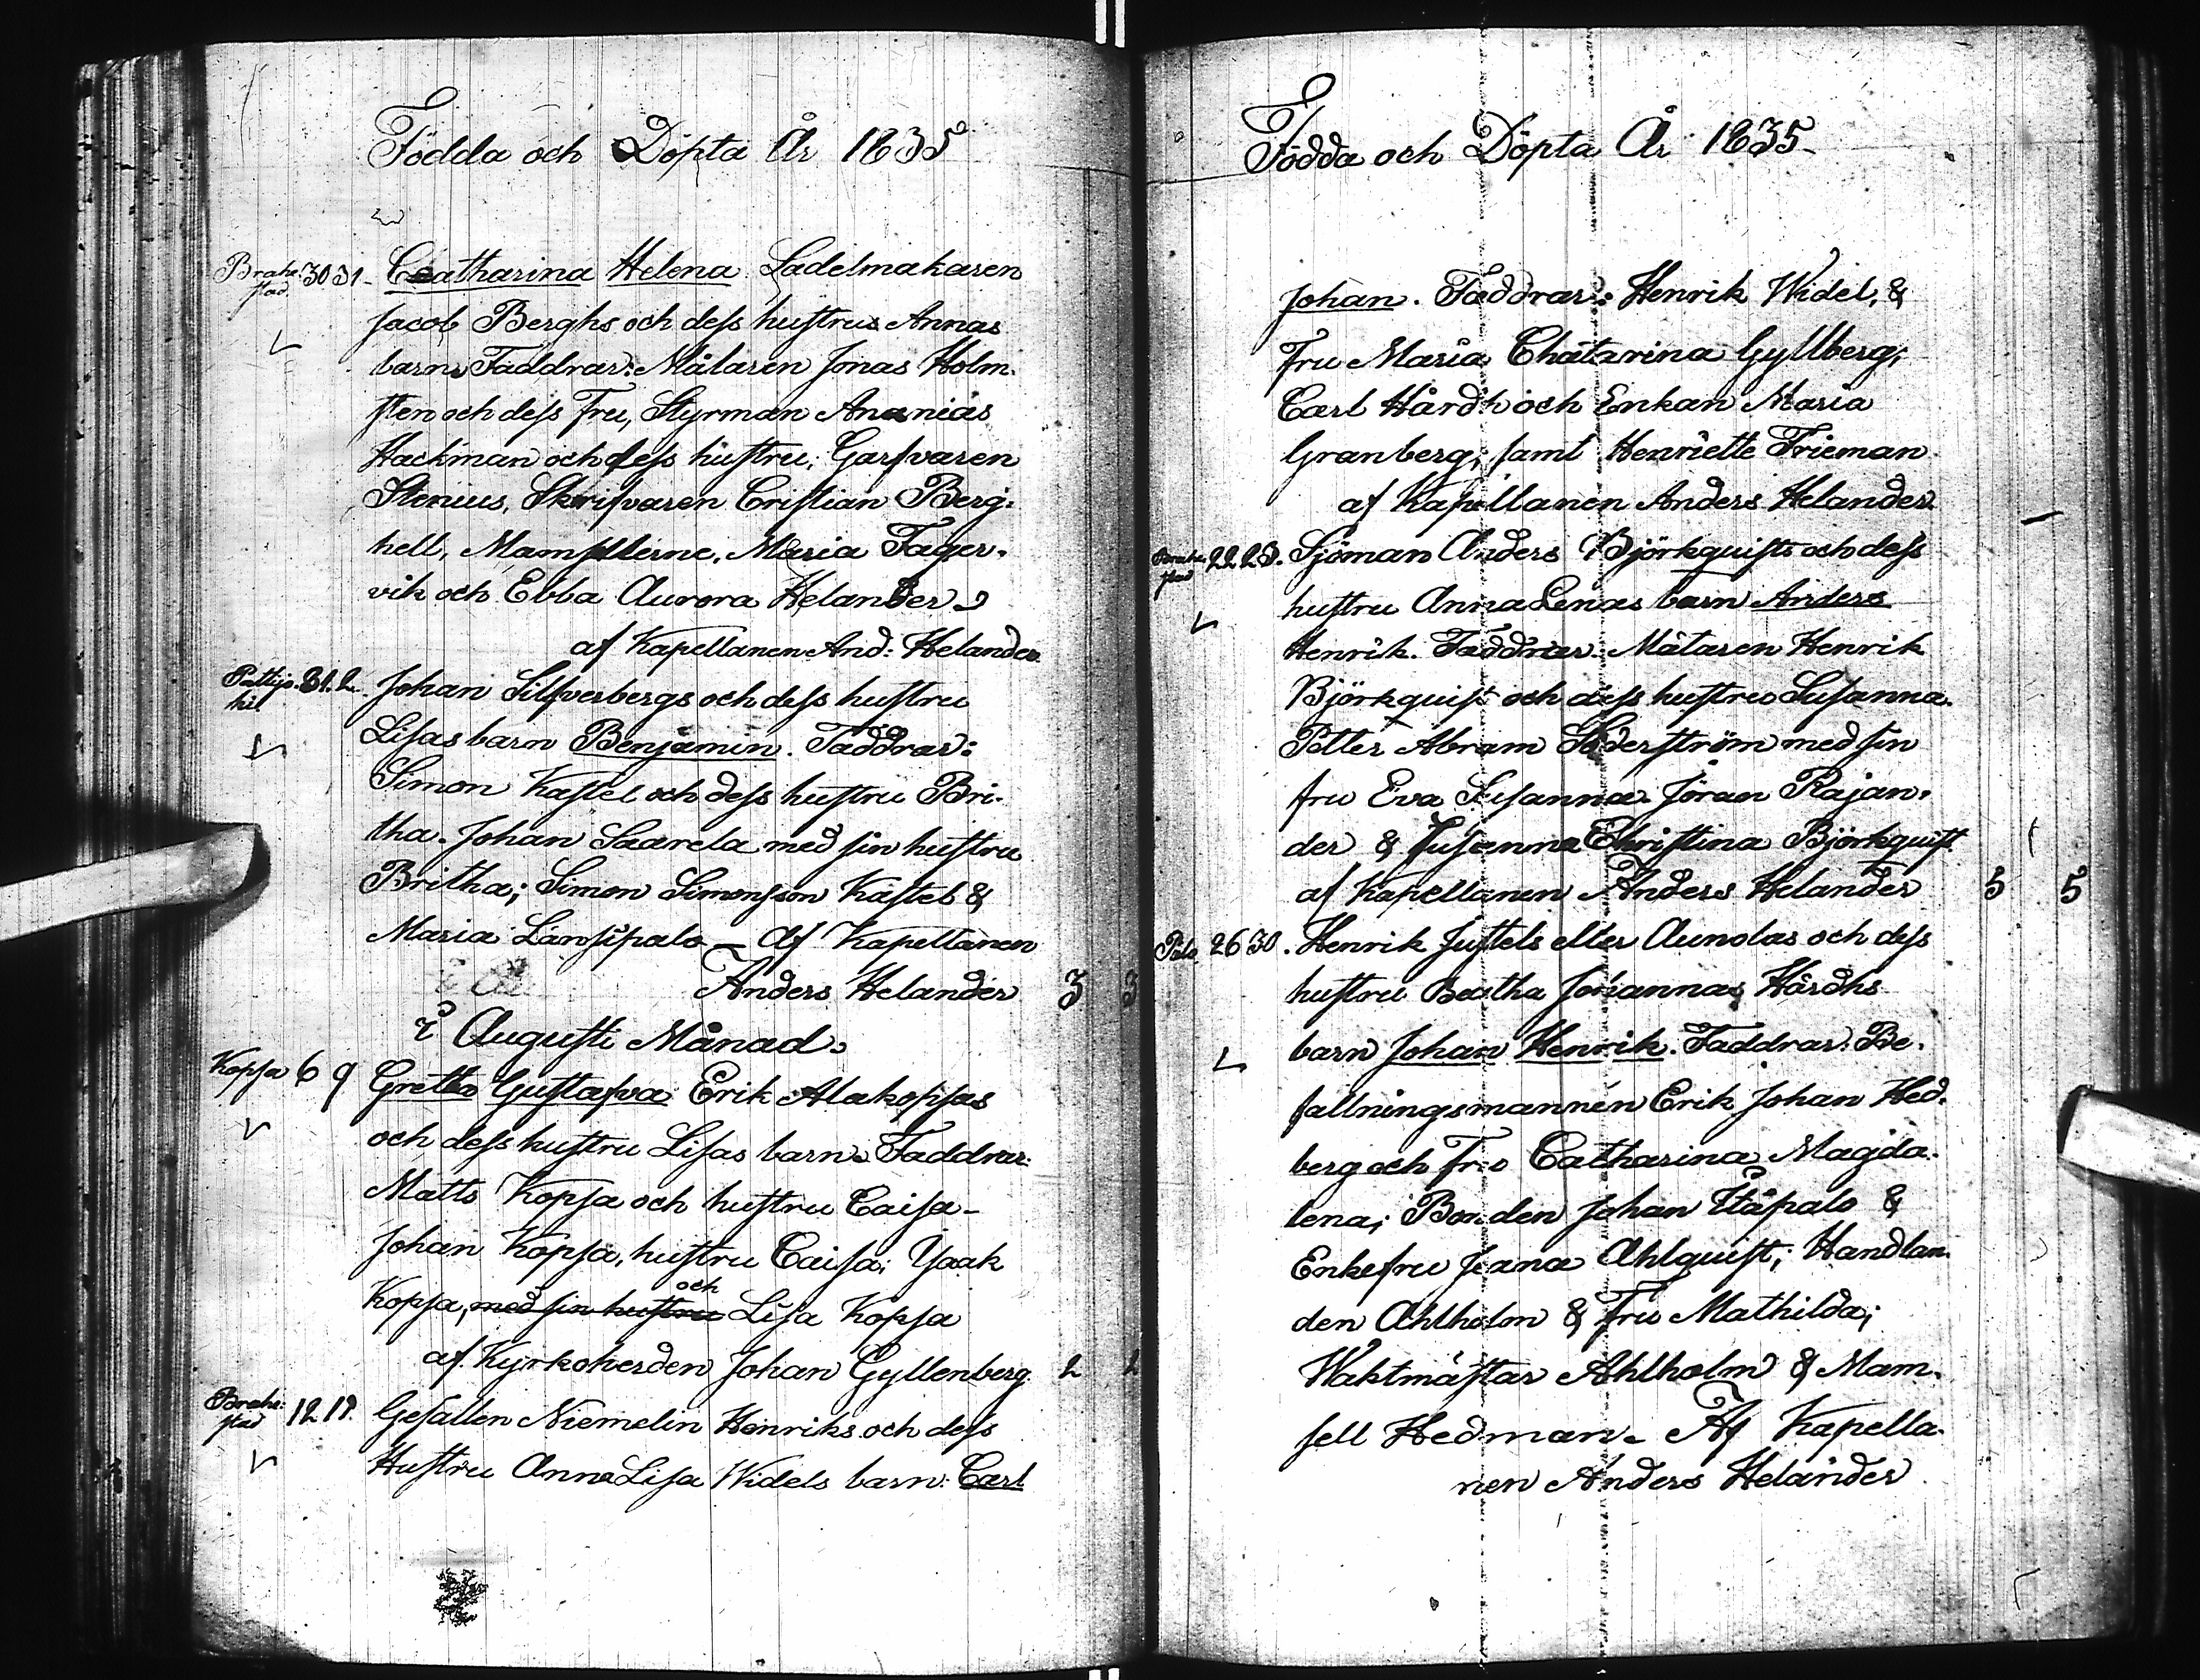 Födda och Döpta År 1835
Brahe-
stad. 30 31 Catharina Helena. Sadelmakaren
Jacob Berghs och dess hustrus Annas
barn. Faddrar: Målaren Jonas Holm-
sten och dess Fru, Styrman Ananias
Hackman och dess hustru; Garfvaren
Stenius, Skrifvaren Cristian Berg-
hell, Mamsellerne. Maria Fager-
vik och Ebba Aurora Helander
af Kapellanen And: Helander.
Pattijo-
ki 31. 2. Johan Silfverbergs och dess hustru
Lisas barn Benjamin. Faddrar:
Simon Kastel och dess hustru Bri-
tha. Johan Saarela med sin hustru
Britha; Simon Simonsson Kastel &
Maria Länsipalo – Af Kapellanen
Anders Helander 3 3
i Augusti Månad.
Kopsa 6 9 Greta Gustafva Erik Alakopsas
och dess hustru Lisas barn. Faddrar:
Matts Kopsa och hustru Caisa –
Johan Kopsa, hustru Caisa; Ysaak
Kopsa, med sin hustru och Lisa Kopsa
af Kyrkoherden Johan Gyllenberg. 2 2
Brahe-
stad 12 19. Gesällen Niemelin Henriks och dess
Hustru Anna Lisa Widels barn: Carl
Födda och Döpta År 1835
Johan. Faddrar: Henrik Widel, &
Fru Maria Chatarina Gyllberg;
Carl Hårdh och Enkan Maria
Granberg; samt Henriette Frieman
af Kapellanen Anders Helander
Brahe-
stad 22. 23. Sjöman Anders Björkquists och dess
hustru Anna Lenas barn Anders
Henrik. Faddrar: Mätaren Henrik
Björkquist och dess hustru Susanna.
Petter Abram Söderström med sin
fru Eva Susanna. Jöran Rajan-
der & Susanna Christina Björkquist
af Kapellanen Anders Helander 5 5
Palo 26 30. Henrik Justels eller Aunolas och dess
hustru Beatha Johannas Hårdhs
barn Johan Henrik. Faddrar: Be-
fallningsmannen Erik Johan Hed-
berg och Fru Catharina Magda-
lena; Bonden Johan Ylipalo &
Enkefru Jeana Ahlquist; Handlan-
den Ahlholm & Fru Mathilda;
Waktmästar Ahlholm & Mam-
sell Hedman – Af Kapella-
nen Anders Helander